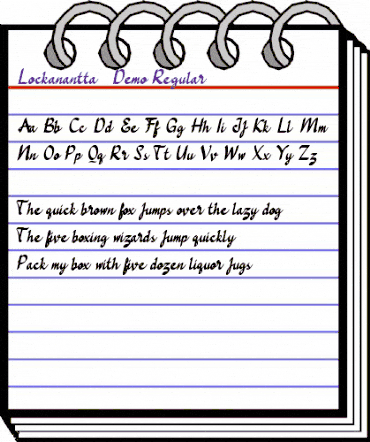 Lockanantta Demo Regular
Aa Bb Cc Dd Ee Ff Gg Hh Ii Jj Kk Ll Mm
Nn Oo Pp Qq Rr Ss Tt Uu Vv Ww Xx Yy Zz
The quick brown fox jumps over the lazy dog
The five boxing wizards jump quickly
Pack my box with five dozen liquor jugs